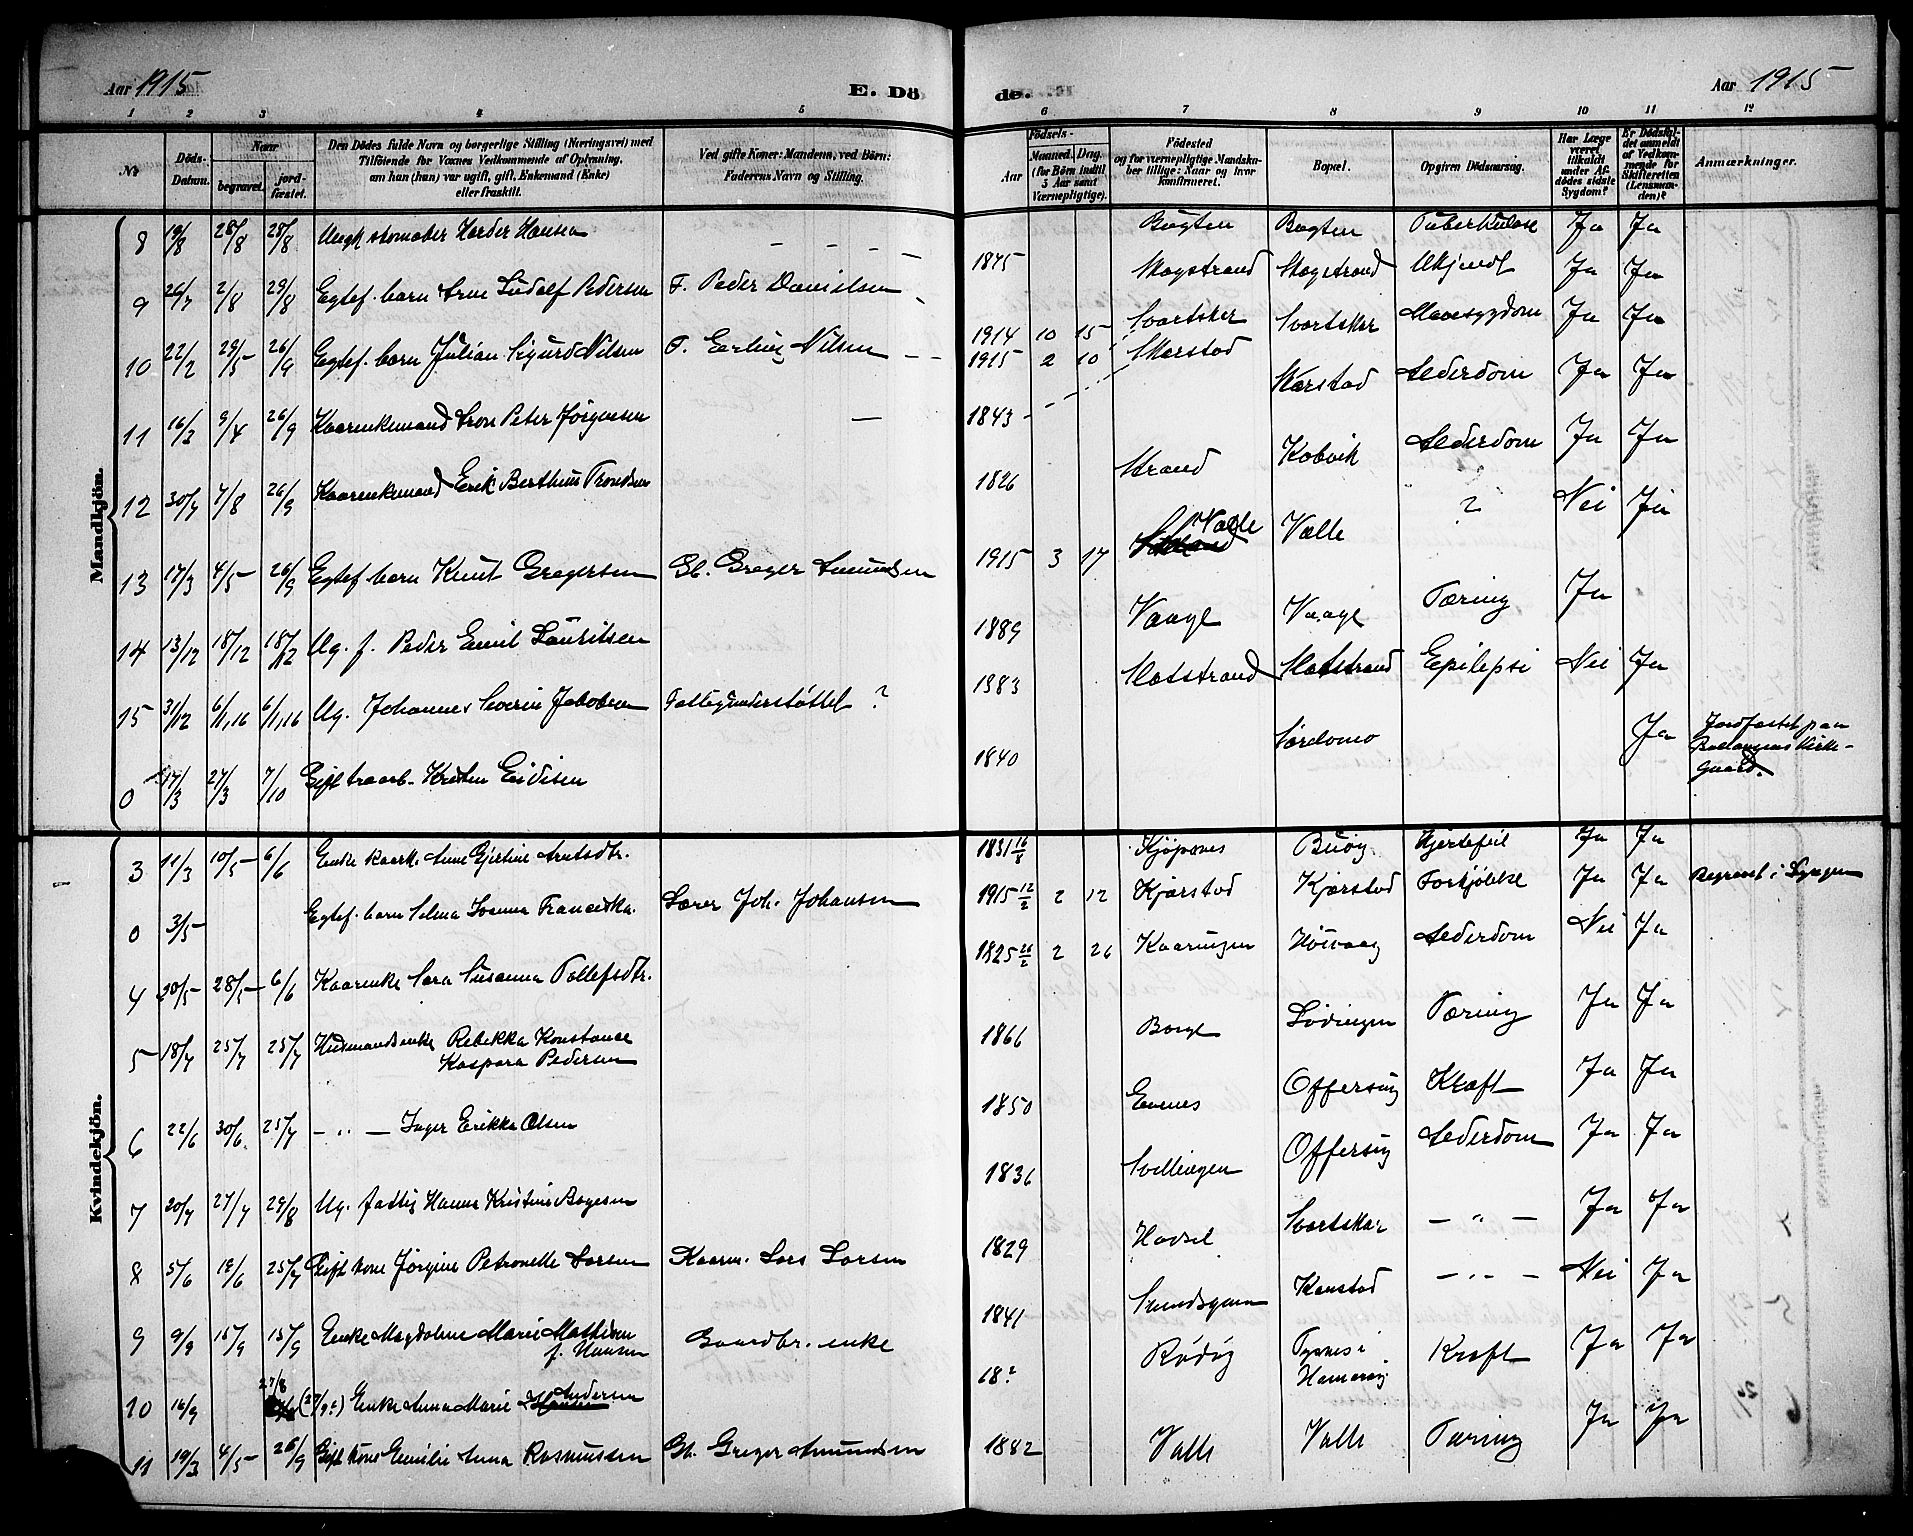 Aar 1915
E. Dö
de.
Aar 1915
1 2 3 4 5 6 7 8 9 10 11 12
No
Döds-Datum.
Naar
begravet.
jord-fæstet.
Den Dödes fulde Navn og borgerlige Stilling (Næringsvei) med
Tilföiende for Voxnes Vedkommende af Oplysning,
om han (hun) var ugift, gift, Enkemand (Enke)
eller fraskilt.
Ved gifte Koner: Mandens, ved Börn:
Faderens Navn og Stilling.
Födsels-
Aar
Maaned. Dag.
(for Börn indtil
5 Aar samt
Værnepligtige).
Födested
og for værnepligtige Mandska-
ber tillige: Naar og hvor
konfirmeret.
Bopæl.
Opgiven Dödsaarsag.
Har Læge
været
tilkaldt
under Af-
dödes sidste
Sygdom?
Er Dödsfal-
det anmeldt
af Vedkom-
mende for
Skifteretten
(Lensman-
den)?
Anmærkninger.
Mandkjön.
8 19/8 28/8 28/8 Ungk. Hansen – – – 1875 Bugten Bugten Tuberkulose Ja Ja
9 26/7 2/8 29/8 Egtef. barn Arne Ludolf Pedersen F. Peder Danielsen 1914 10 15 Skogstrand Skogstrand Ukjendt Ja Ja
10 22/2 29/5 26/9 Egtef. barn Julian Sigurd Nilsen F. Erling Nilsen – – 1915 2 10 Svartskar Svartskar Mavesygdom Ja Ja
11 16/3 9/4 26/9 Kaarenkemand Aron Peter Jørgensen – 1843 Skarstad Skarstad Alderdom Ja Ja
12 30/7 7/8 26/9 Kaarenkemand Erik Berthius Trondsen 1826 Strand Kobvik Alderdom Ja Ja
13 17/3 4/5 26/9 Egtef. barn Knut Gregersen Gb. Greger Amundsen 1915 3 17 Valle Valle ? Nei Ja
14 13/12 18/12 18/12 Ug. f. Peder Emil Lauritsen 1889 Vaage Vaage Tæring Ja
15 31/12 6/1,16 6/1,16 Ug. Johannes Severin Jakobsen Fattigunderstøttet ? 1883 Slotstrand Slotstrand Epilepsi Nei Ja
0 17/3 27/3 7/10 Gift 1840 Sørdomo Ja Jordfæstet paa
Ballangens Kirke-
gaard.
Kvindekjön.
3 11/3 10/5 6/6 Enke kaark. Anne Gjertine Arntsdtr. 1831 16/8 Kjøpsnes Buøy Hjertefeil Ja Ja
0 3/5 Egtef. barn Selma Josena Franciska. Lærer Joh. Johansen 1915 12/2 2 12 Kjærstad Kjærstad Forkjølelse Ja Ja Begravet i Lyngen
4 20/5 28/5 6/6 Kaarenke Sara Susanna Tollefsdtr. 1825 26/2 2 26 Kaaringen Alderdom Nei Ja
5 18/7 25/7 25/7 Husmandsenke Rebekka Konstance
Kaspara Pedersen 1866 Borge Lødingen Tæring Ja Ja
6 22/6 30/6 25/7 – „ – Inger Erikka Olsen 1850 Evenes Offersøy Kræft Ja Ja
7 20/7 27/7 29/8 Ug. fattig Hanna Kristine Bogesen 1836 Offersøy Alderdom Ja Ja
8 5/6 12/6 25/7 Gift kone Jørgine Petronelle Larsen Kaarm. Lars Larsen 1829 Hadsel Svartskar – „ – Ja Ja
9 9/9 15/9 15/9 Enke Magdalena Marie Mathisen
f. Hansen Gaardbr. enke 1841 Kanstad – „ – Nei Ja
10 16/9 27/8 (27/9?) Enke Anna Marie Andersen 18? Rødøy Tysnes i
Hamarøy Kræft Ja Ja
11 19/3 4/5 26/9 Gift kone Emilie Anna Rasmussen Gb. Greger Amundsen 1882 Valle Valle Tæring Ja Ja